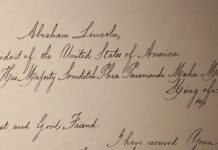 Abraham Lincoln,
ident of the United States of America.
His Majesty Somdetch Phra Paramendr Maha M
King of
at and Good Friend:
I have received Your